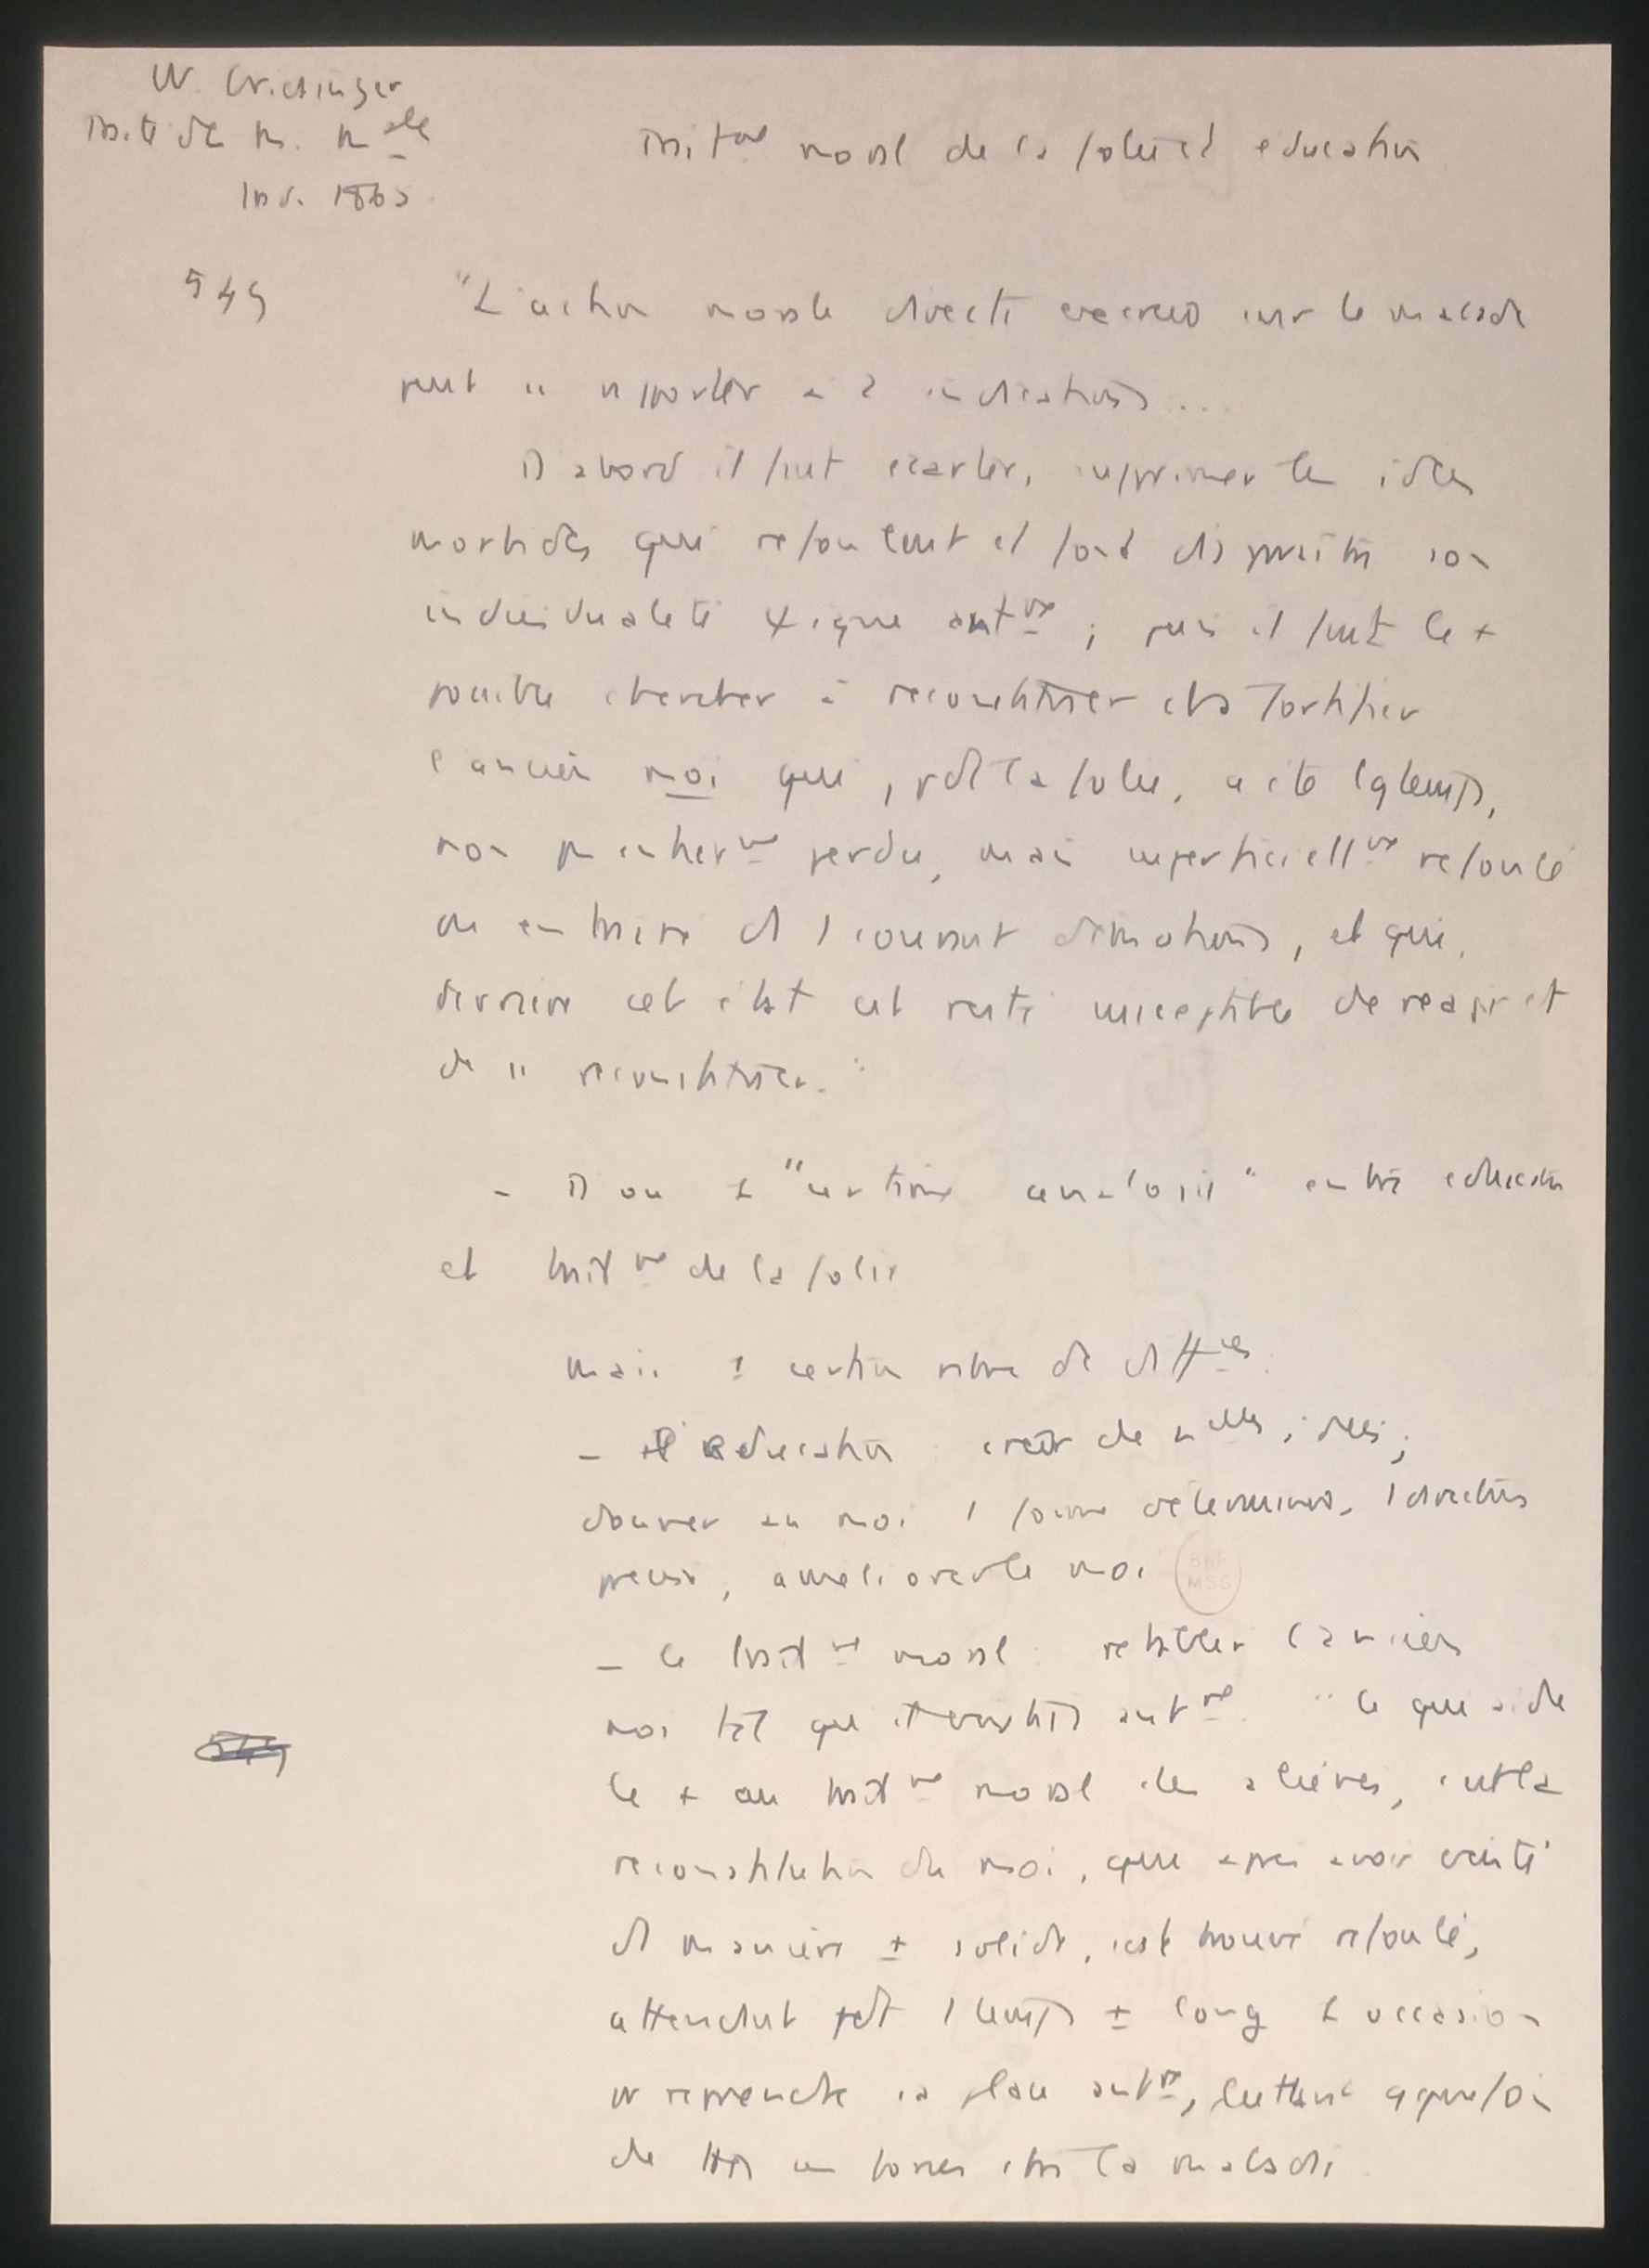 W. Griesinger
Traité des m. males
trad. 1865
Traitmt moral de la folie et éducation
549
"L'action morale directe exercée sur le malade
peut se rapporter à 2 indications...
D'abord il faut écarter, supprimer les idées
morbides qui refoulent et font disparaître son
individualité ψique antre ; puis il faut le +
possible chercher à reconstituer et à fortifier
l'ancien moi qui, pdt la folie, a été lgtemps,
non pas entièrmt perdu, mais superficiellmt refoulé
ou entraîné ds 1 courant d'émotions, et qui,
derrière cet état est resté susceptible de réagir et
de se reconstituer."
- D'où l'"extrême analogie" entre éducation
et traitmt de la folie
mais 1 certain nbre de diffces
- éducation : créer de nelles idées ;
donner au moi 1 forme déterminée, 1 direction
précise, améliorer le moi
BnF
MSS
- le traitmt moral : rétablir l'ancien
moi tel qu'il existait antmt. "Ce qui aide
le + au traitmt moral des aliénés, c'est la
reconstitution du moi, qui après avoir existé
de manière ± solide, s'est trouvé refoulé,
attendant pdt 1 temps ± long l'occasion
de reprendre sa place antre, luttant qquefois
de ttes ses forces ctre la maladie